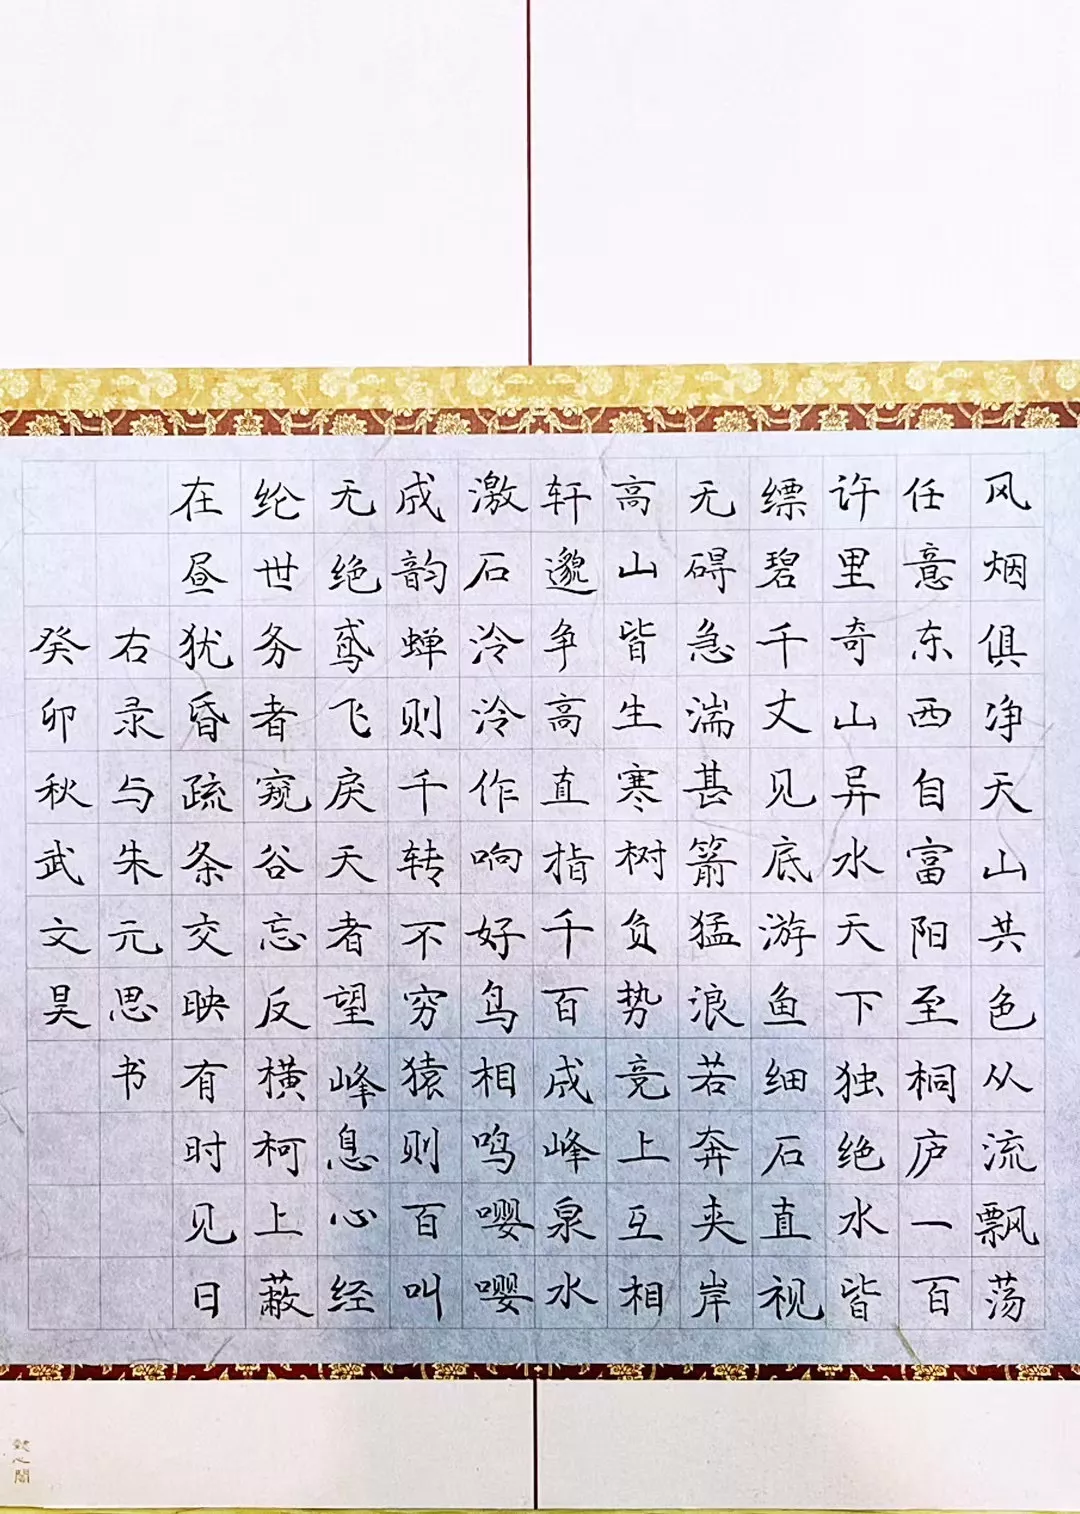 风烟俱净天山共色从流飘荡
任意东西自富阳至桐庐一百
许里奇山异水天下独绝水皆
缥碧千丈见底游鱼细石直视
无碍急湍甚箭猛浪若奔夹岸
高山皆生寒树负势竞上互相
轩邈争高直指千百成峰泉水
激石泠泠作响好鸟相鸣嘤嘤
成韵蝉则千转不穷猿则百叫
无绝鸢飞戾天者望峰息心经
纶世务者窥谷忘反横柯上蔽
在昼犹昏疏条交映有时见日
右录与朱元思书
癸卯秋武文昊